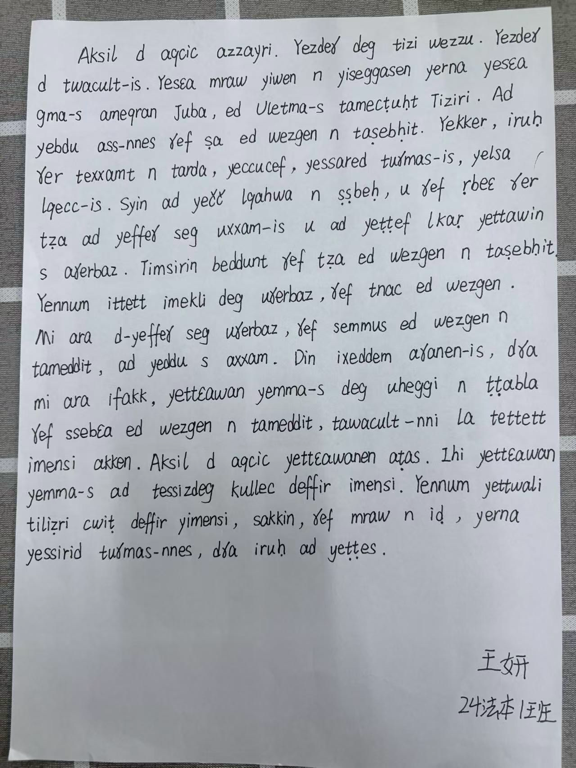 Aksil d aqcic azzayri. Yezdeɣ deg tizi wezzu. Yezdeɣ
d twacult-is. Yesɛa mraw yiwen n yiseggasen yerna yesɛa
gma-s ameqran Juba, ed Uletma-s tamecṭuḥt Tiziri. Ad
yebdu ass-nnes ɣef ṣa ed wezgen n taṣebḥit. Yekker, iruḥ
ɣer texxamt n tarda, yeccucef, yessared tuɣmas-is, yelsa
lqecc-is. Syin ad yečč lqahwa n ṣṣbeḥ, u ɣef ṛbeɛ ɣer
tẓa ad yeffeɣ seg uxxam-is u ad yeṭṭef lkaṛ yettawin
s aɣerbaz. Timsirin beddunt ɣef tẓa ed wezgen n taṣebḥit.
Yennum ittett imekli deg uɣerbaz, ɣef tnac ed wezgen.
Mi ara d-yeffeɣ seg uɣerbaz, ɣef semmus ed wezgen n
tameddit, ad yeddu s axxam. Din ixeddem aɣanen-is, dɣa
mi ara ifakk, yettɛawan yemma-s deg uheggi n ṭṭabla
ɣef ssebɛa ed wezgen n tameddit, tawacult-nni la tettett
imensi akken. Aksil d aqcic yettɛawanen aṭas. Ihi yettɛawan
yemma-s ad tessizdeg kullec deffir imensi. Yennum yettwali
tiliẓri cwiṭ deffir yimensi, sakkin, ɣef mraw n iḍ, yerna
yessirid tuɣmas-nnes, dɣa iruḥ ad yeṭṭes.
王妍
24法本1班